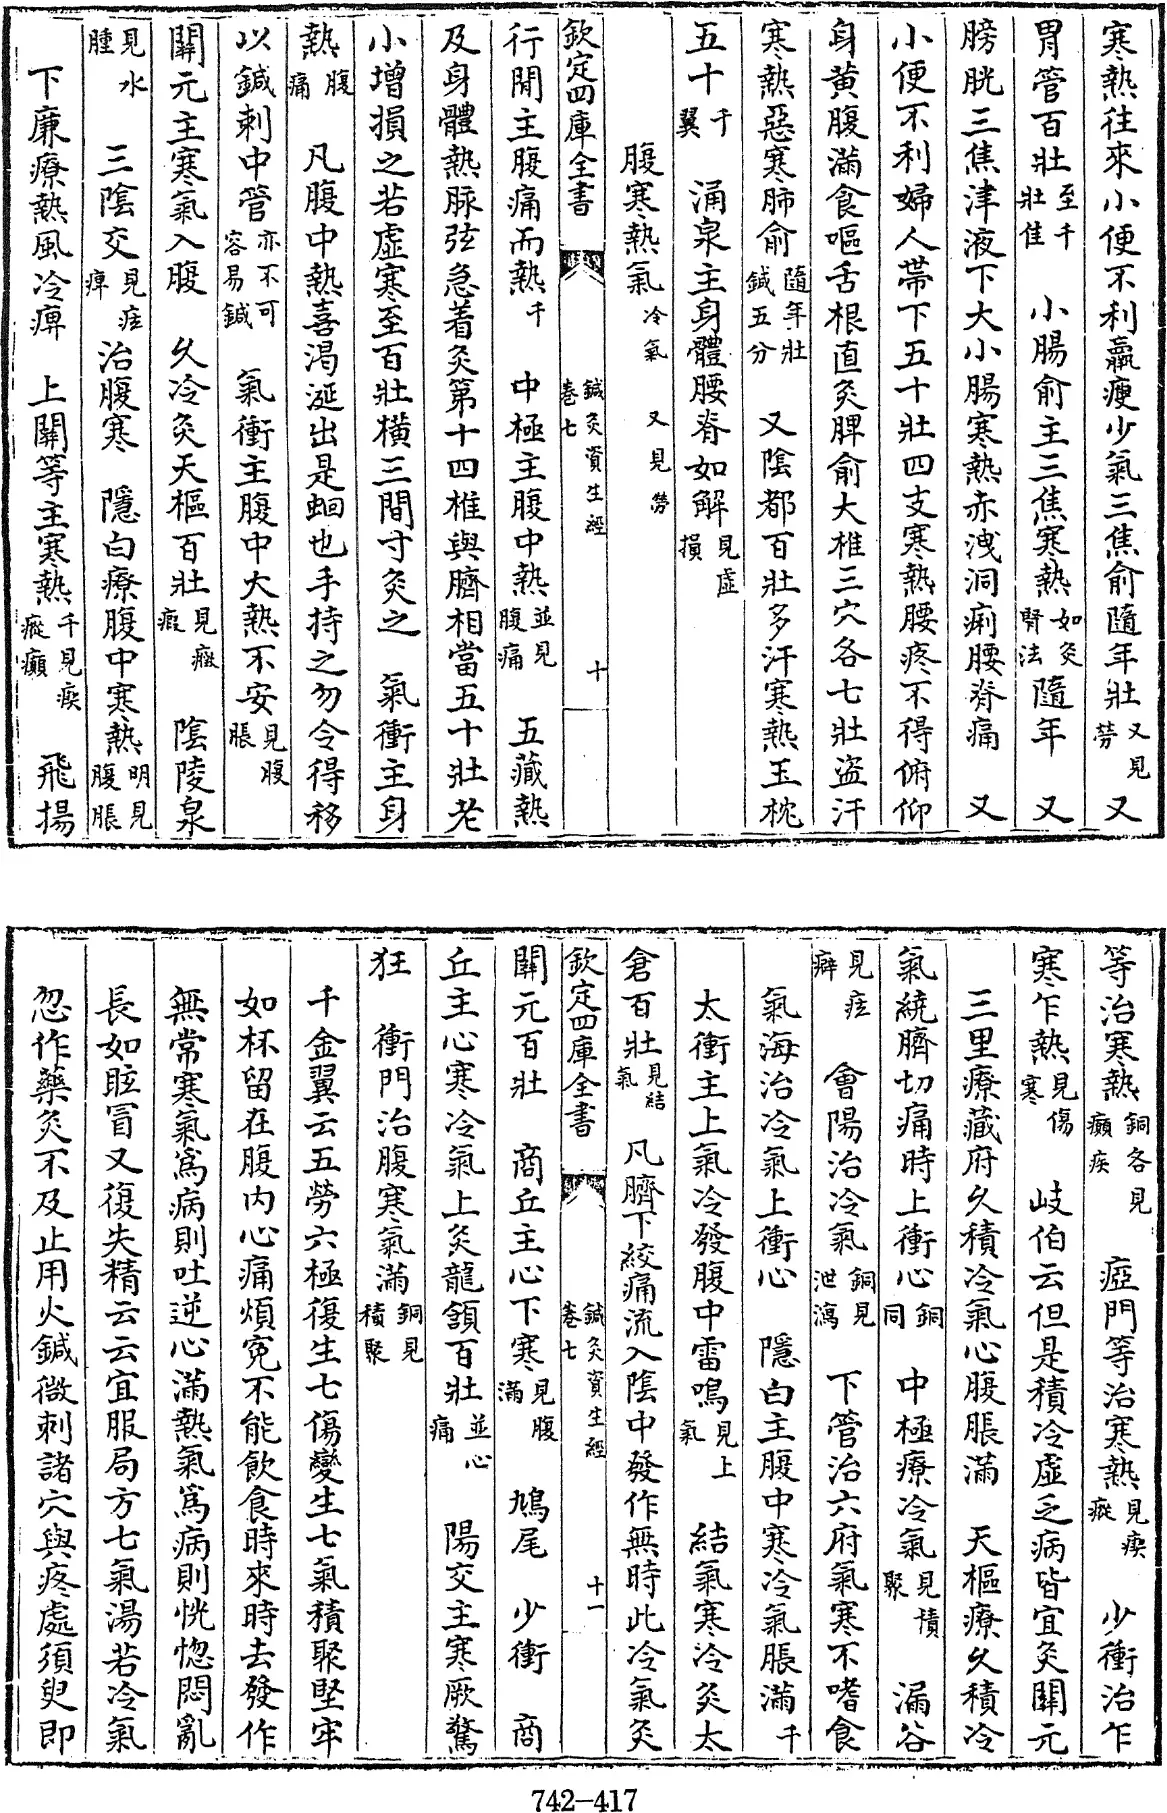 寒熱往來小便不利羸瘦少氣三焦俞隨年壯又見勞又
胃管百壯至千壯佳　小腸俞主三焦寒熱如灸腎法隨年　又
膀胱三焦津液下大小腸寒熱赤洩洞痢腰脊痛　又
小便不利婦人帶下五十壯四支寒熱腰疼不得俯仰
身黄腹滿食嘔舌根直灸脾俞大椎三穴各七壯盗汗
寒熱惡寒肺俞隨年壯鍼五分　又陰都百壯多汗寒熱玉枕
五十千翼　涌泉主身體腰脊如解見虛損
腹寒熱氣冷氣　又見勞
欽定四庫全書　鍼灸資生經卷七　十
行閒主腹痛而熱千　中極主腹中熱並見腹痛　五藏熱
及身體熱脉弦急着灸第十四椎與臍相當五十壯老
小增損之若虛寒至百壯横三間寸灸之　氣衝主身
熱腹痛　凡腹中熱喜渴涎出是蛔也手持之勿令得移
以鍼刺中管亦不可容易鍼　氣衝主腹中大熱不安見腹脹
關元主寒氣入腹　久冷灸天樞百壯見癥瘕　陰陵泉
見水腫　三陰交見疰痺治腹寒　隱白療腹中寒熱明見腹脹
下廉療熱風冷痺　上關等主寒熱千見瘊瘲癲　飛揚
等治寒熱銅各見癲疾　瘂門等治寒熱見瘈瘲　少衝治乍
寒乍熱見傷寒　岐伯云但是積冷虛乏病皆宜灸關元
三里療藏府久積冷氣心腹脹滿　天樞療久積冷
氣繞臍切痛時上衝心銅同　中極療冷氣見積聚　漏谷
見疰癖　會陽治冷氣銅見泄瀉　下管治六府氣寒不嗜食
氣海治冷氣上衝心　隱白主腹中寒冷氣脹滿千
太衝主上氣冷發腹中雷鳴見上氣　結氣寒冷灸太
倉百壯見結氣　凡臍下絞痛流入陰中發作無時此冷氣灸
欽定四庫全書　鍼灸資生經卷七　十一
關元百壯　商丘主心下寒見腹滿　鳩尾　少衝　商
丘主心寒冷氣上灸龍頷百壯並心痛　陽交主寒厥驚
狂　衝門治腹寒氣滿銅見積聚
千金翼云五勞六極復生七傷變生七氣積聚堅牢
如杯留在腹内心痛煩寃不能飲食時來時去發作
無常寒氣爲病則吐逆心滿熱氣爲病則恍惚悶亂
長如眩冒又復失精云云宜服局方七氣湯若冷氣
忽作藥灸不及止用火鍼微刺諸穴與疼處須臾即
742-417